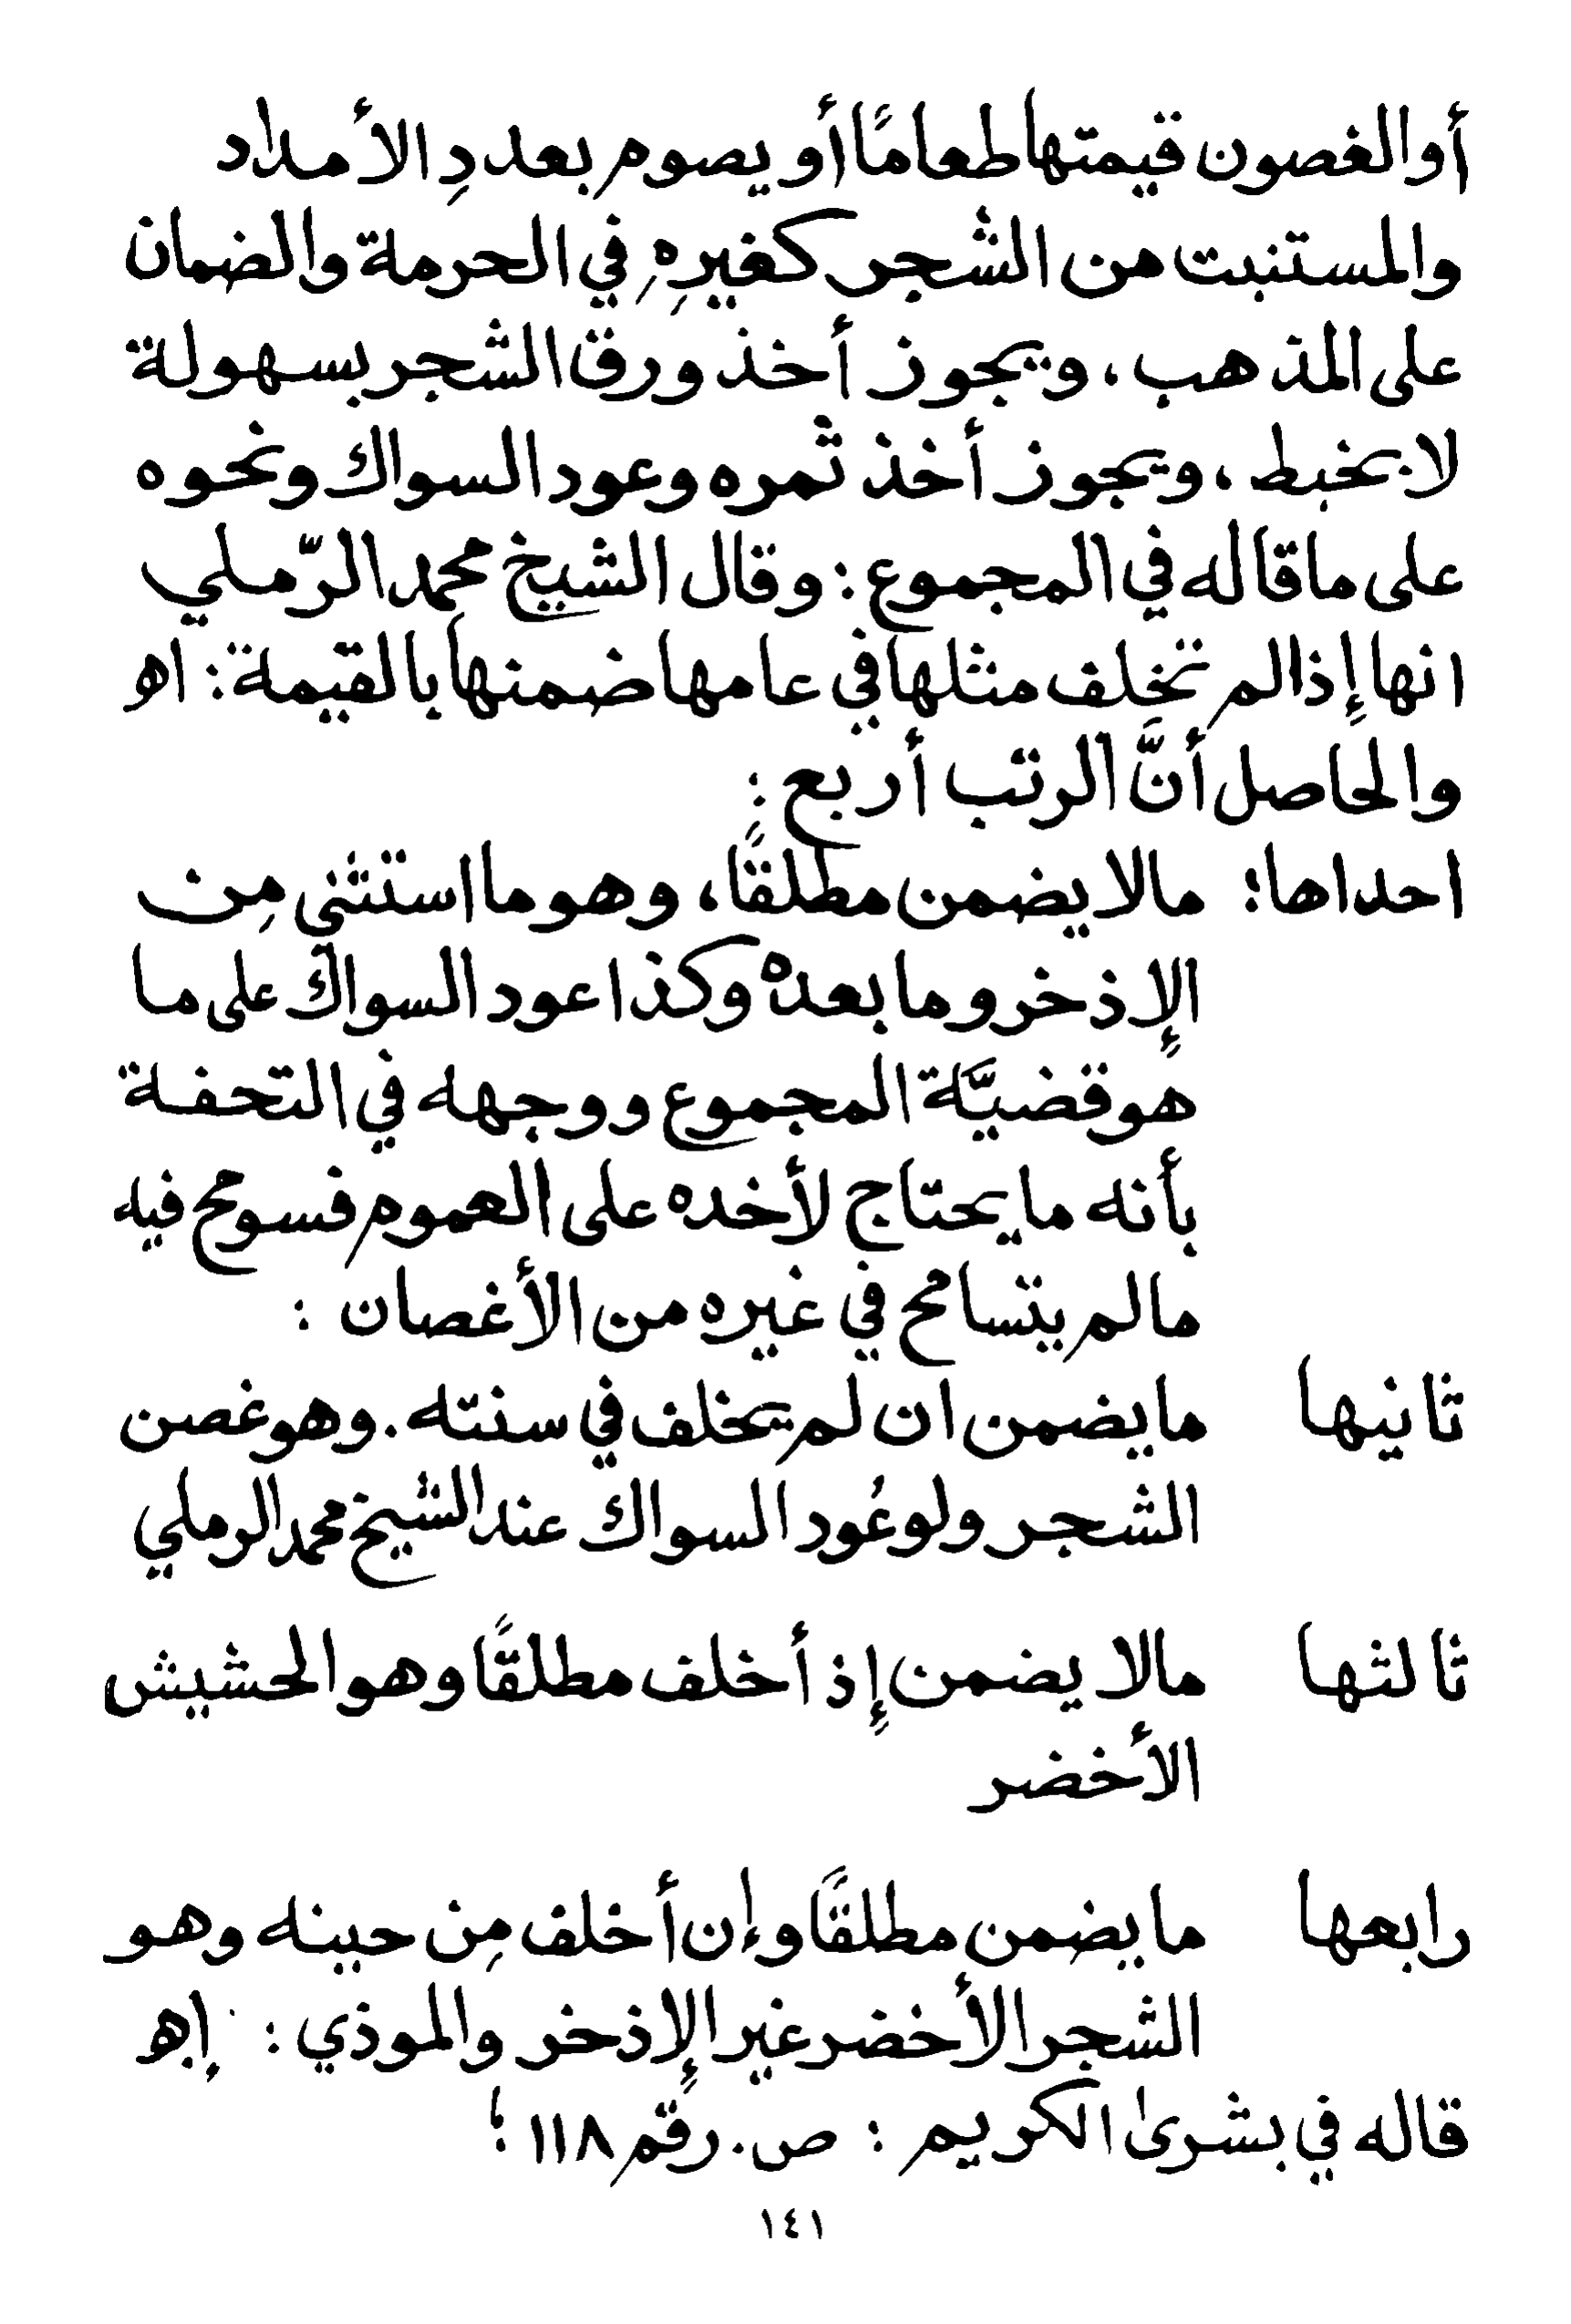 أو الغصون قيمتها طعامًا أو يصوم بعددِ الأمداد
والمستنبت من الشجر كغيرِهِ في الحرمة والضمان
على المذهب، ويجوز أخذ ورق الشجر بسهولة
لا بخبط، ويجوز أخذ ثمره وعود السواك ونحوه
على ما قاله في المجموع : وقال الشيخ محمد الرّملي
انها إِذا لم تخلف مثلها في عامها ضمنها بالقيمة : اه
والحاصل أنَّ الرتب أربع :
احداها: مالا يضمن مطلقًا، وهو ما استثنى مِن
الإذخر وما بعده وكذا عود السواك على ما
هو قضيَّة المجموع ووجهه في التحفة
بأنه ما يحتاج لأخده على العموم فسومح فيه
مالم يتسامح في غيره من الأغصان :
ثانيها ما يضمن ان لم يتخلف في سنته. وهو غصن
الشجر ولو عُود السواك عند الشيخ محمد الرملي
ثالثها مالا يضمن إِذ أخلف مطلقًا وهو الحشيش
الأخضر
رابعها ما يضمن مطلقًا وإن أخلف مِن حينه وهو
الشجر الأخضر غير الإِذخر والموذي : إه
قاله في بشرىٰ الكريم : ص. رقم ١١٨ ؛
١٤١